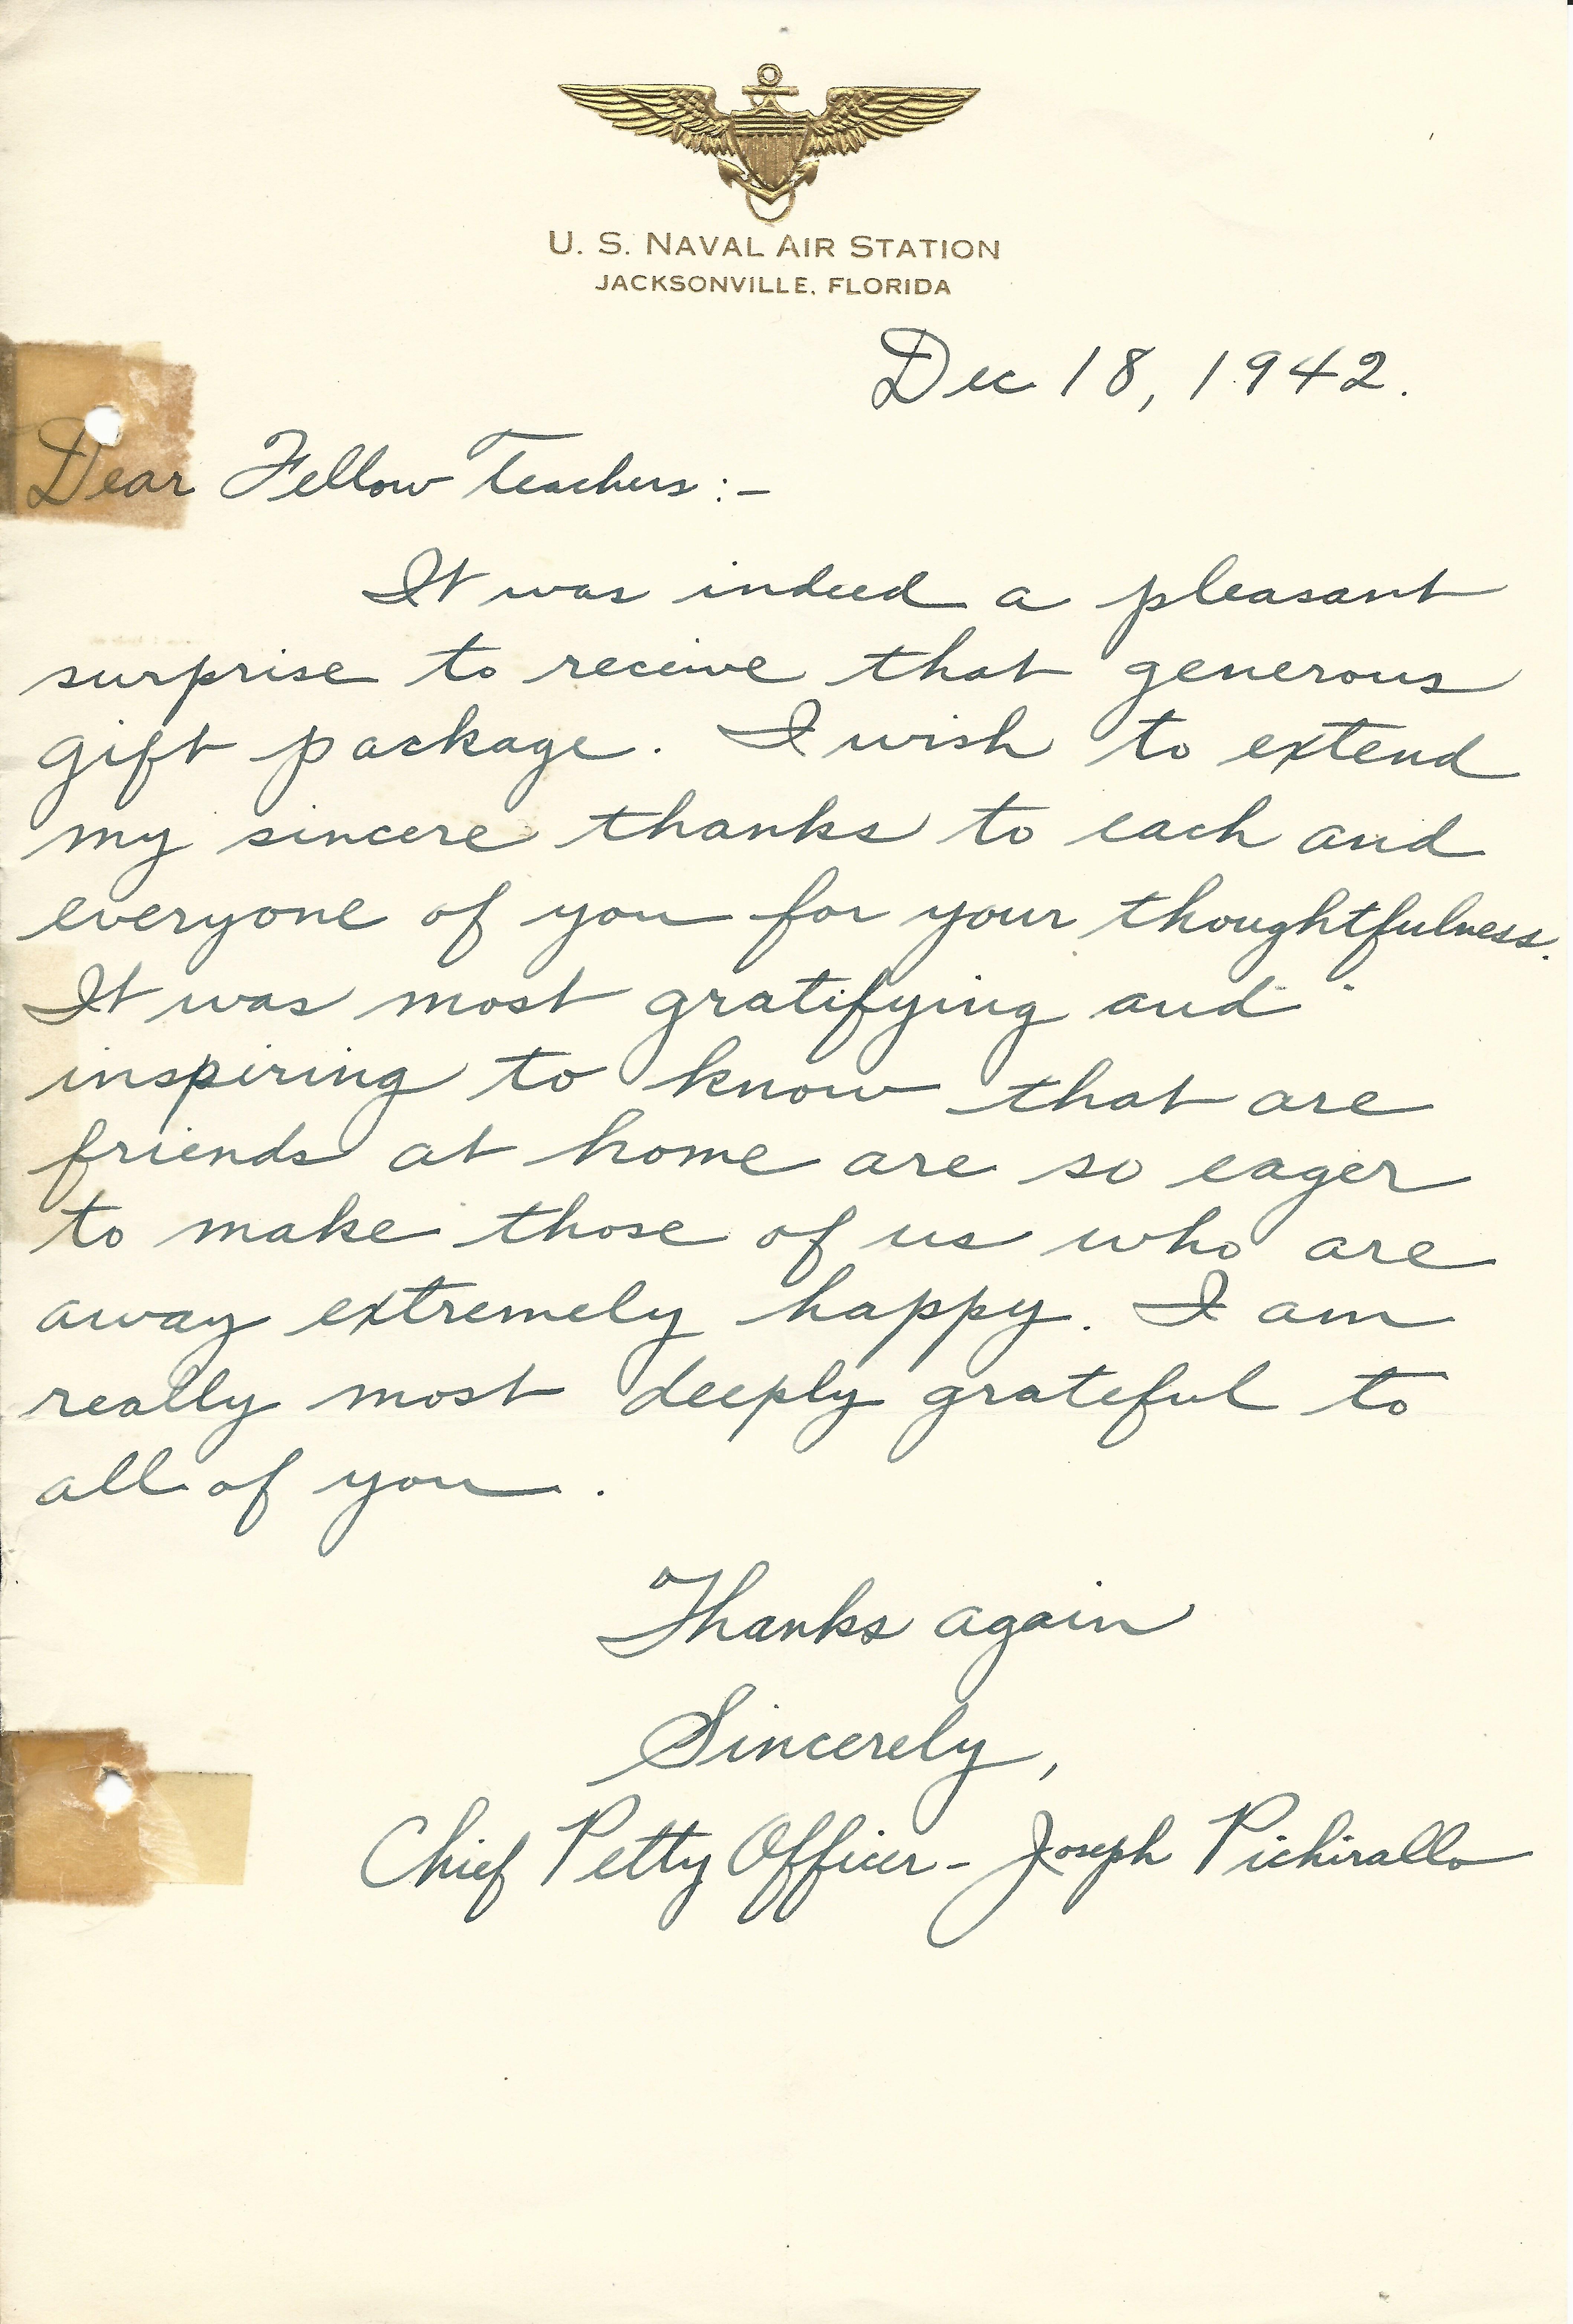 U. S. NAVAL AIR STATION
JACKSONVILLE, FLORIDA
Dec 18, 1942.
Dear Fellow Teachers:-
It was indeed a pleasant
surprise to receive that generous
gift package. I wish to extend
my sincere thanks to each and
everyone of you for your thoughtfulness.
It was most gratifying and
inspiring to know that are
friends at home are so eager
to make those of us who are
away extremely happy. I am
really most deeply grateful to
all of you.
Thanks again
Sincerely,
Chief Petty Officer - Joseph Pichirallo